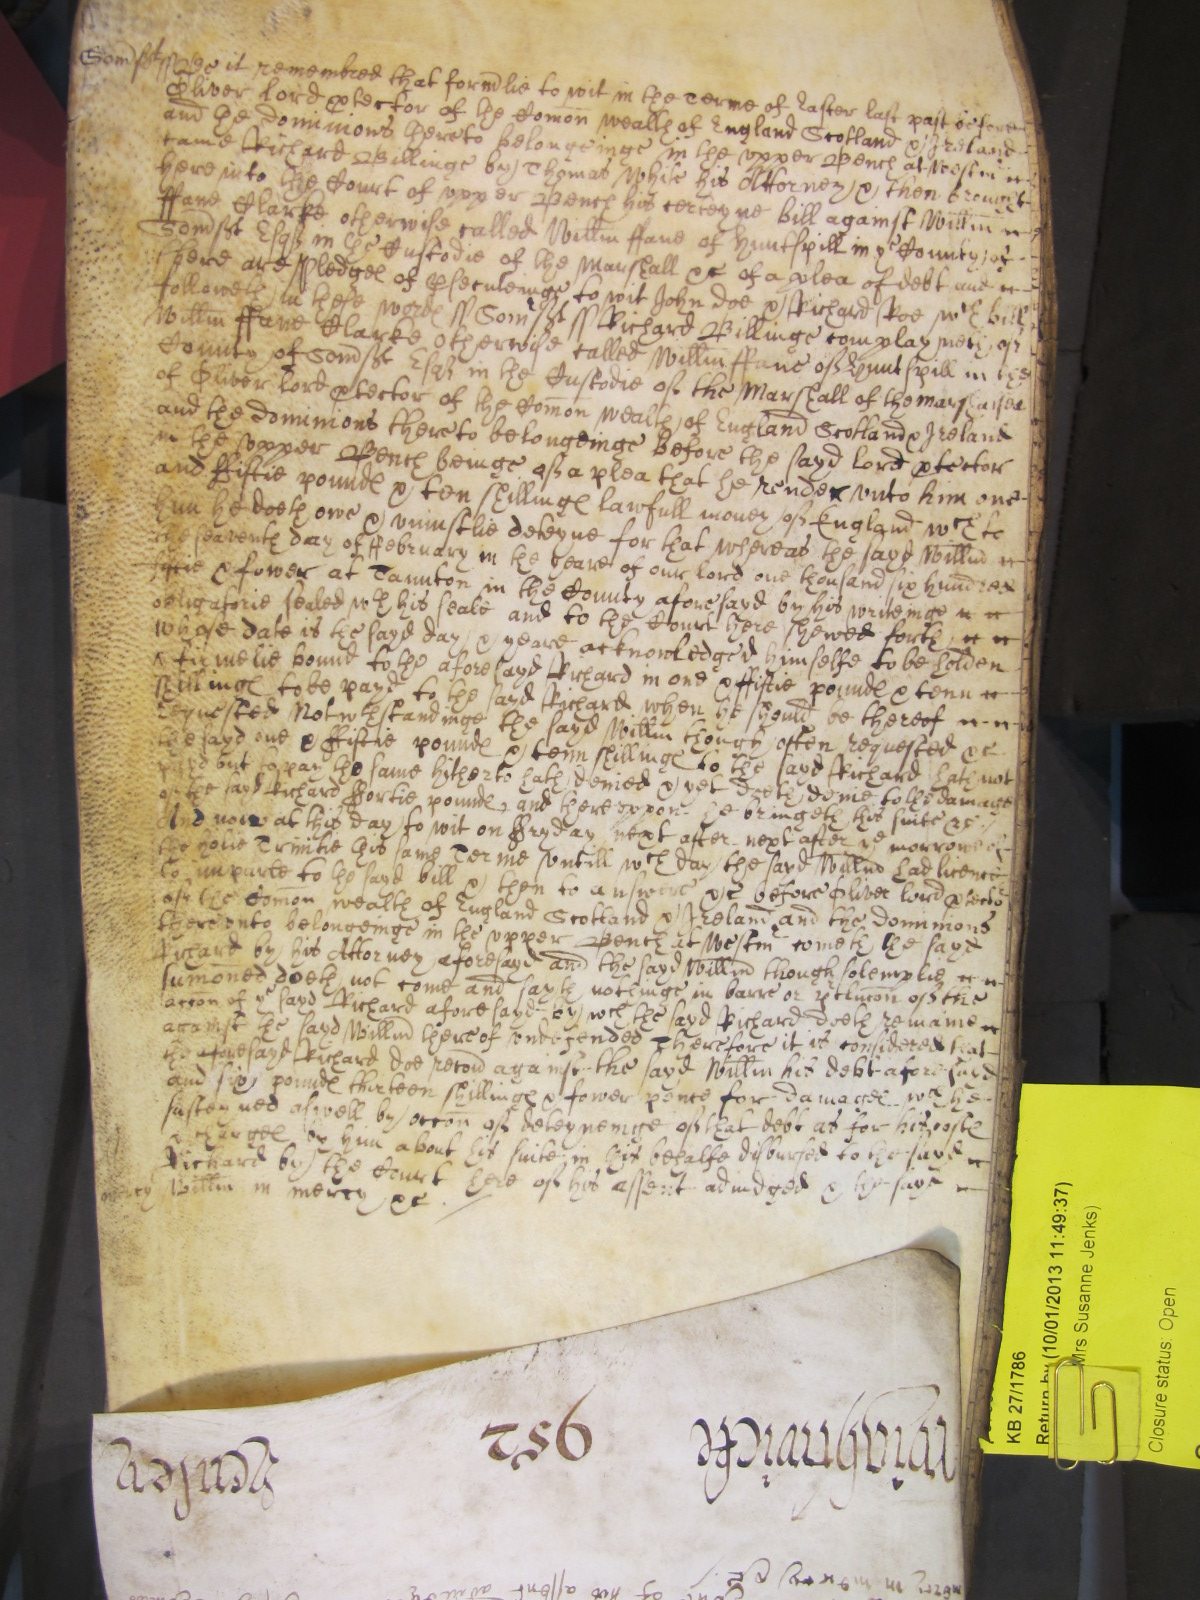 Somsst ss Bee it remembred that formlie to wit in the Terme of Easter last past before
Oliver lord ptector of the Comon wealth of England Scotland & Ireland
and the dominions thereto belongeinge in the upper Bench at Westm
came Richard Billinge by Thomas White his Attorney & then brought
here into the Court of upper Bench his certeyne bill against Willm
ffane Clarke otherwise called Willm ffane of Huntspill in ye County of
Somsst Esqr in the Custodie of the Marshall &c of a plea of debt and
there are Pledges of Pseculeinge to wit John Doe & Richard Roe wch bill
followeth in these words ss Somsst ss Richard Billinge complayneth of
Willm ffane Clarke otherwise called Willm ffane of Huntspill in the
County of Somsst Esqr in the Custodie of the Marshall of the marshalsea
of Oliver Lord ptector of the Comon wealth of England Scotland & Ireland
and the dominions thereto belongeinge before the sayd lord ptector
in the upper Bench beinge of a plea that he render unto him one
and ffiftie pounds & ten shillings lawfull money of England wch to
him he doeth owe & uniustlie deteyne for that whereas the sayd Willm
the seaventh day of ffebruary in the yeare of our lord one thousand six hundred
fiftie & fower at Taunton in the County aforesayd by his writeinge
obligatorie sealed wth his seale and to the Court here shewed forth
whose date is the sayd day & yeare acknowledged himselfe to be holden
& firmelie bound to the aforesayd Richard in one & ffiftie pounds & tenn
shillings to be payd to the sayd Richard when he should be thereof
requested Notwthstandinge the sayd Willm though often requested &c
the sayd one & ffiftie pounds & tenn shillings to the sayd Richard hath not
payd but to pay the same hitherto hath denied & yet doeth denie to the damage
of the sayd Richard ffortie pounds and thereuppon he bringeth his suite &c
And now at this day to wit on ffryday next after next after ye morrowe of
the holie Trinitie this same Terme untill wch day the sayd Willm had licence
to imparle to the sayd bill & then to answere &c before Oliver lord ptector
of the Comon wealth of England Scotland & Ireland and the dominions
thereonto belongeinge in the upper Bench at Westm cometh the sayd
Richard by his Attorney aforesayd and the sayd Willm though solemplie
sumoned doeth not come and sayth nothinge in barre or pclucon of the
accon of ye sayd Richard aforesayd by wch the sayd Richard doeth remaine
against the sayd Willm thereof undefended Therefore it is considered that
the aforesayd Richard doe recou against the sayd Willm his debt aforesayd
and six pounds thirteen shillings & fower pence for damages wch he
susteyned aswell by occon of deteyneinge of that debt as for his costs
& charges by him about his suite in his behalfe disbursed to the sayd
Richard by the Court here of his assent adiudged & the sayd
mercy Willm in mercy &c
952
KB 27/1786
Return by (10/01/2013 11:49:37)
Mrs Susanne Jenks)
Closure status: Open